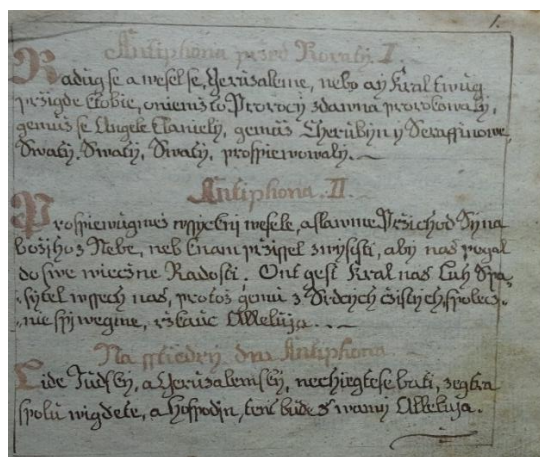 1.
Antiphona przed Roraty. I
Radűg se a wesel se, Gerűzaleme, nebo ay Kral twűg
pržigde ktobie, oniemž to Prorocy zdawna prorokowaly,
geműž se Angele klaniely, geműž Cherűbyn y Seraffinowe,
Swaty, Swaty, Swaty, prospiewowaly.
Antiphona. II.
Prospiewűgmež wssyckni wesele, a slawme Pržichod Syna
božiho z Nebe, neb knam pržissel z wysosti, aby nas pogal
do swe wieczne Radosti. Ont gest Kral nas Luh Spa-
sytel wssech nas, protož gemű z Srdcych čistych, spolec-
nie spiwegme, ržkauc Alleluja.
Na sstiedry den Antiphona
Lide Jűdsky, a Gerűzalemsky, nechtiegte se bati, zegtra
spolű wigdete, a Hospodin, tent bűde s wamy Alleluja.